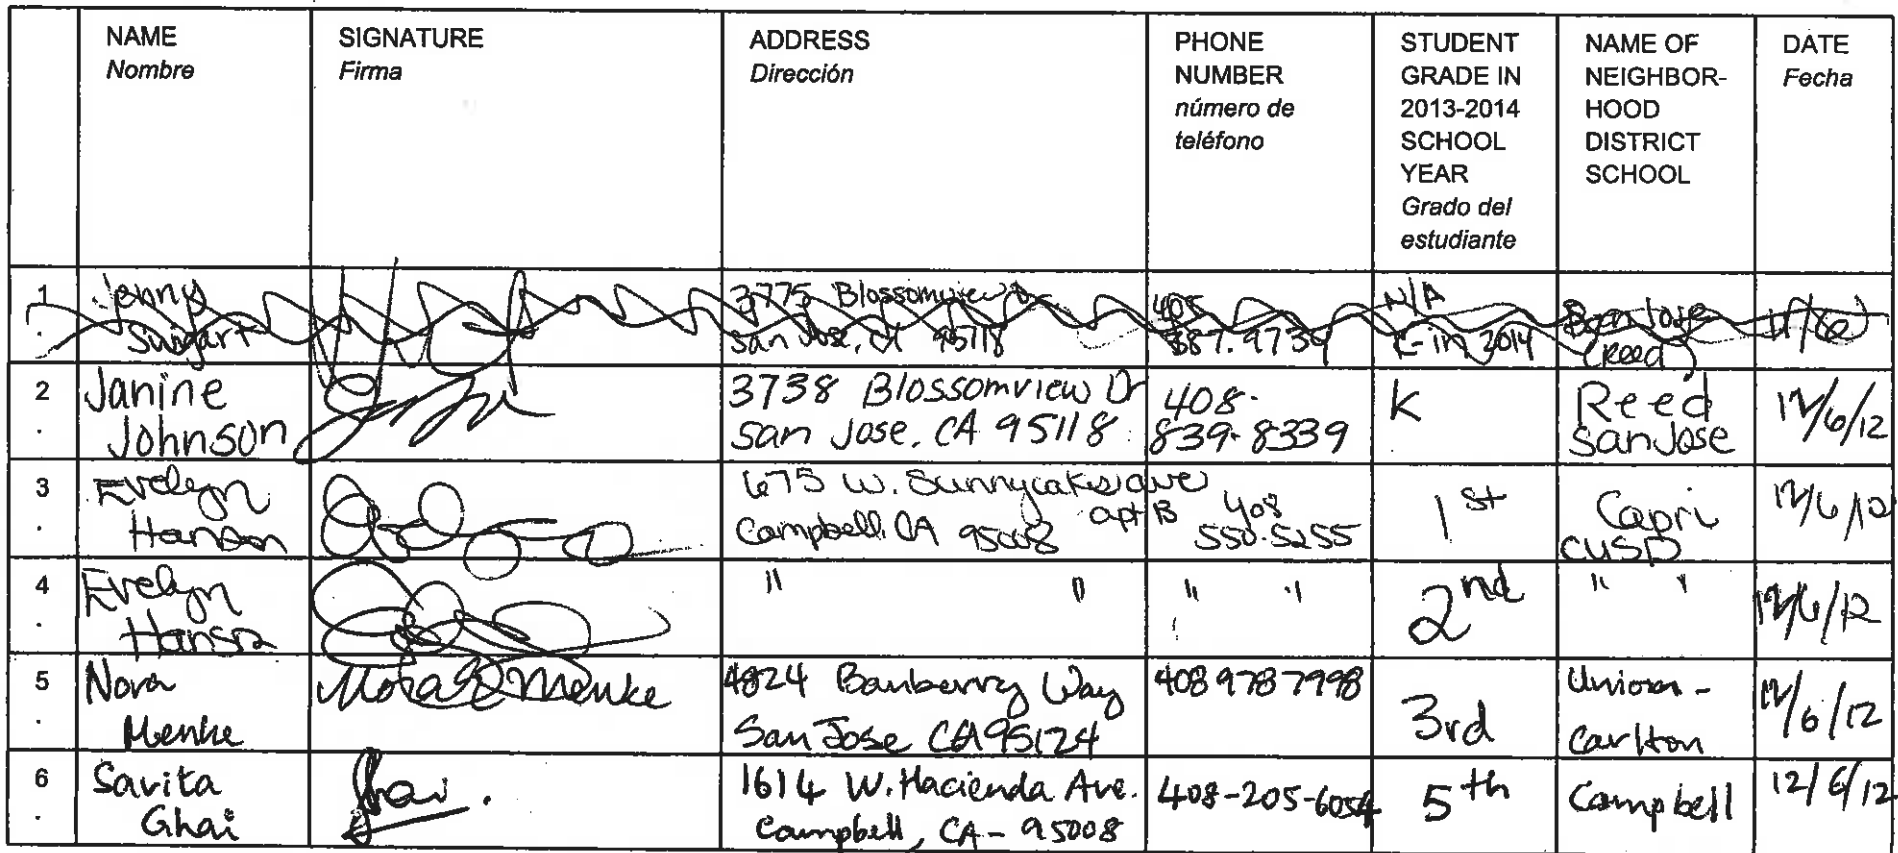 NAME
Nombre
SIGNATURE
Firma
ADDRESS
Dirección
PHONE
NUMBER
número de
teléfono
STUDENT
GRADE IN
2013-2014
SCHOOL
YEAR
Grado del
estudiante
NAME OF
NEIGHBOR-
HOOD
DISTRICT
SCHOOL
DATE
Fecha
1.
Jenny
3775 Blossomview
San Jose, CA 95118
N/A
K-in 2014
(Reed)
2.
Janine
Johnson
3738 Blossomview Dr
San Jose, CA 95118
408-
839-8339
K
Reed
San Jose
12/6/12
3.
Evelyn
Hanson
675 W.
Campbell, CA 95008 apt B
408
550-5255
1st
Capri
CUSD
12/6/12
4.
Evelyn
" "
" "
2nd
" "
12/6/12
5.
Nora
Menke
Nora Menke
4824 Banberry Way
San Jose CA 95124
408 978 7998
3rd
Union -
Carlton
12/6/12
6.
Savita
Ghai
Ghai.
1614 W. Hacienda Ave.
Campbell, CA - 95008
408-205-6054
5th
Campbell
12/6/12